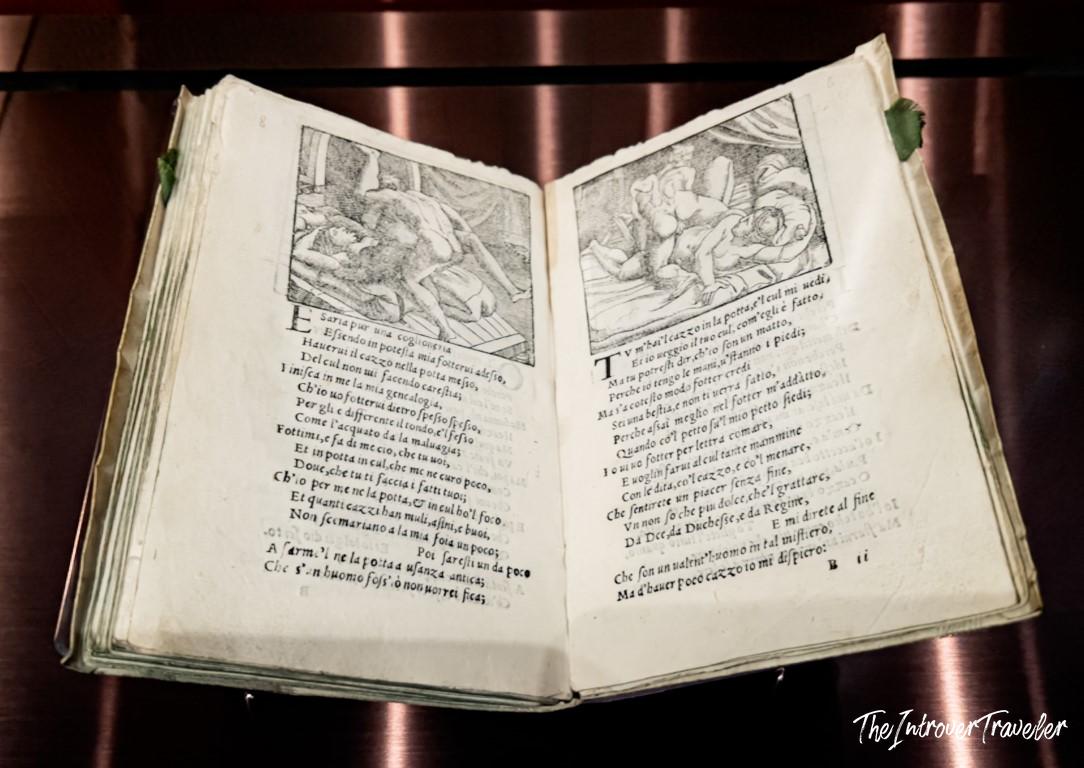 E Saria pur una coglioneria
Essendo in potesta mia fotterui adesso,
Hauerui il cazzo nella potta messo,
Del cul non mi facendo carestia;
Finisca in me la mia genealogia,
Ch'io uo fotterui dietro spesso spesso,
Per gli e differente il tondo, e'l fesso
Come l'acquato da la maluagia;
Fottimi, e fa di me cio, che tu uoi,
Et in potta in cul, che me ne curo poco,
Doue, che tu ti faccia i fatti tuoi;
Ch'io per me ne la potta, & in cul ho'l foco
Et quanti cazzi han muli, asini, e buoi,
Non scemariano a la mia foia un poco;
Poi saresti un da poco
A farmi'l ne la potta a usanza antica;
Che s'un huomo foss'io non uorrei fica;
TV m'hai'l cazzo in la potta, e'l cul mi uedi,
Et io ueggio il tuo cul, com'egli è fatto,
Ma tu potresti dir, ch'io son un matto,
Perche io tengo le mani, u'stanno i piedi;
Ma s'a cotesto modo fotter credi
Sei una bestia, e non ti uerra fatto,
Perche assai meglio nel fotter m'addatto,
Quando co'l petto su'l mio petto siedi;
Io ui uo fotter per lettra comare,
E uoglio farui al cul tante mammine
Con le dita, co'l cazzo, e co'l menare,
Che sentirete un piacer senza fine,
Vn non so che piu dolce, che'l grattare,
Da Dee, da Duchesse, e da Regine,
E mi direte al fine
Che son un ualent'huomo in tal mistiero,
Ma d'hauer poco cazzo io mi dispiero:
B ii
TheIntroverTraveler